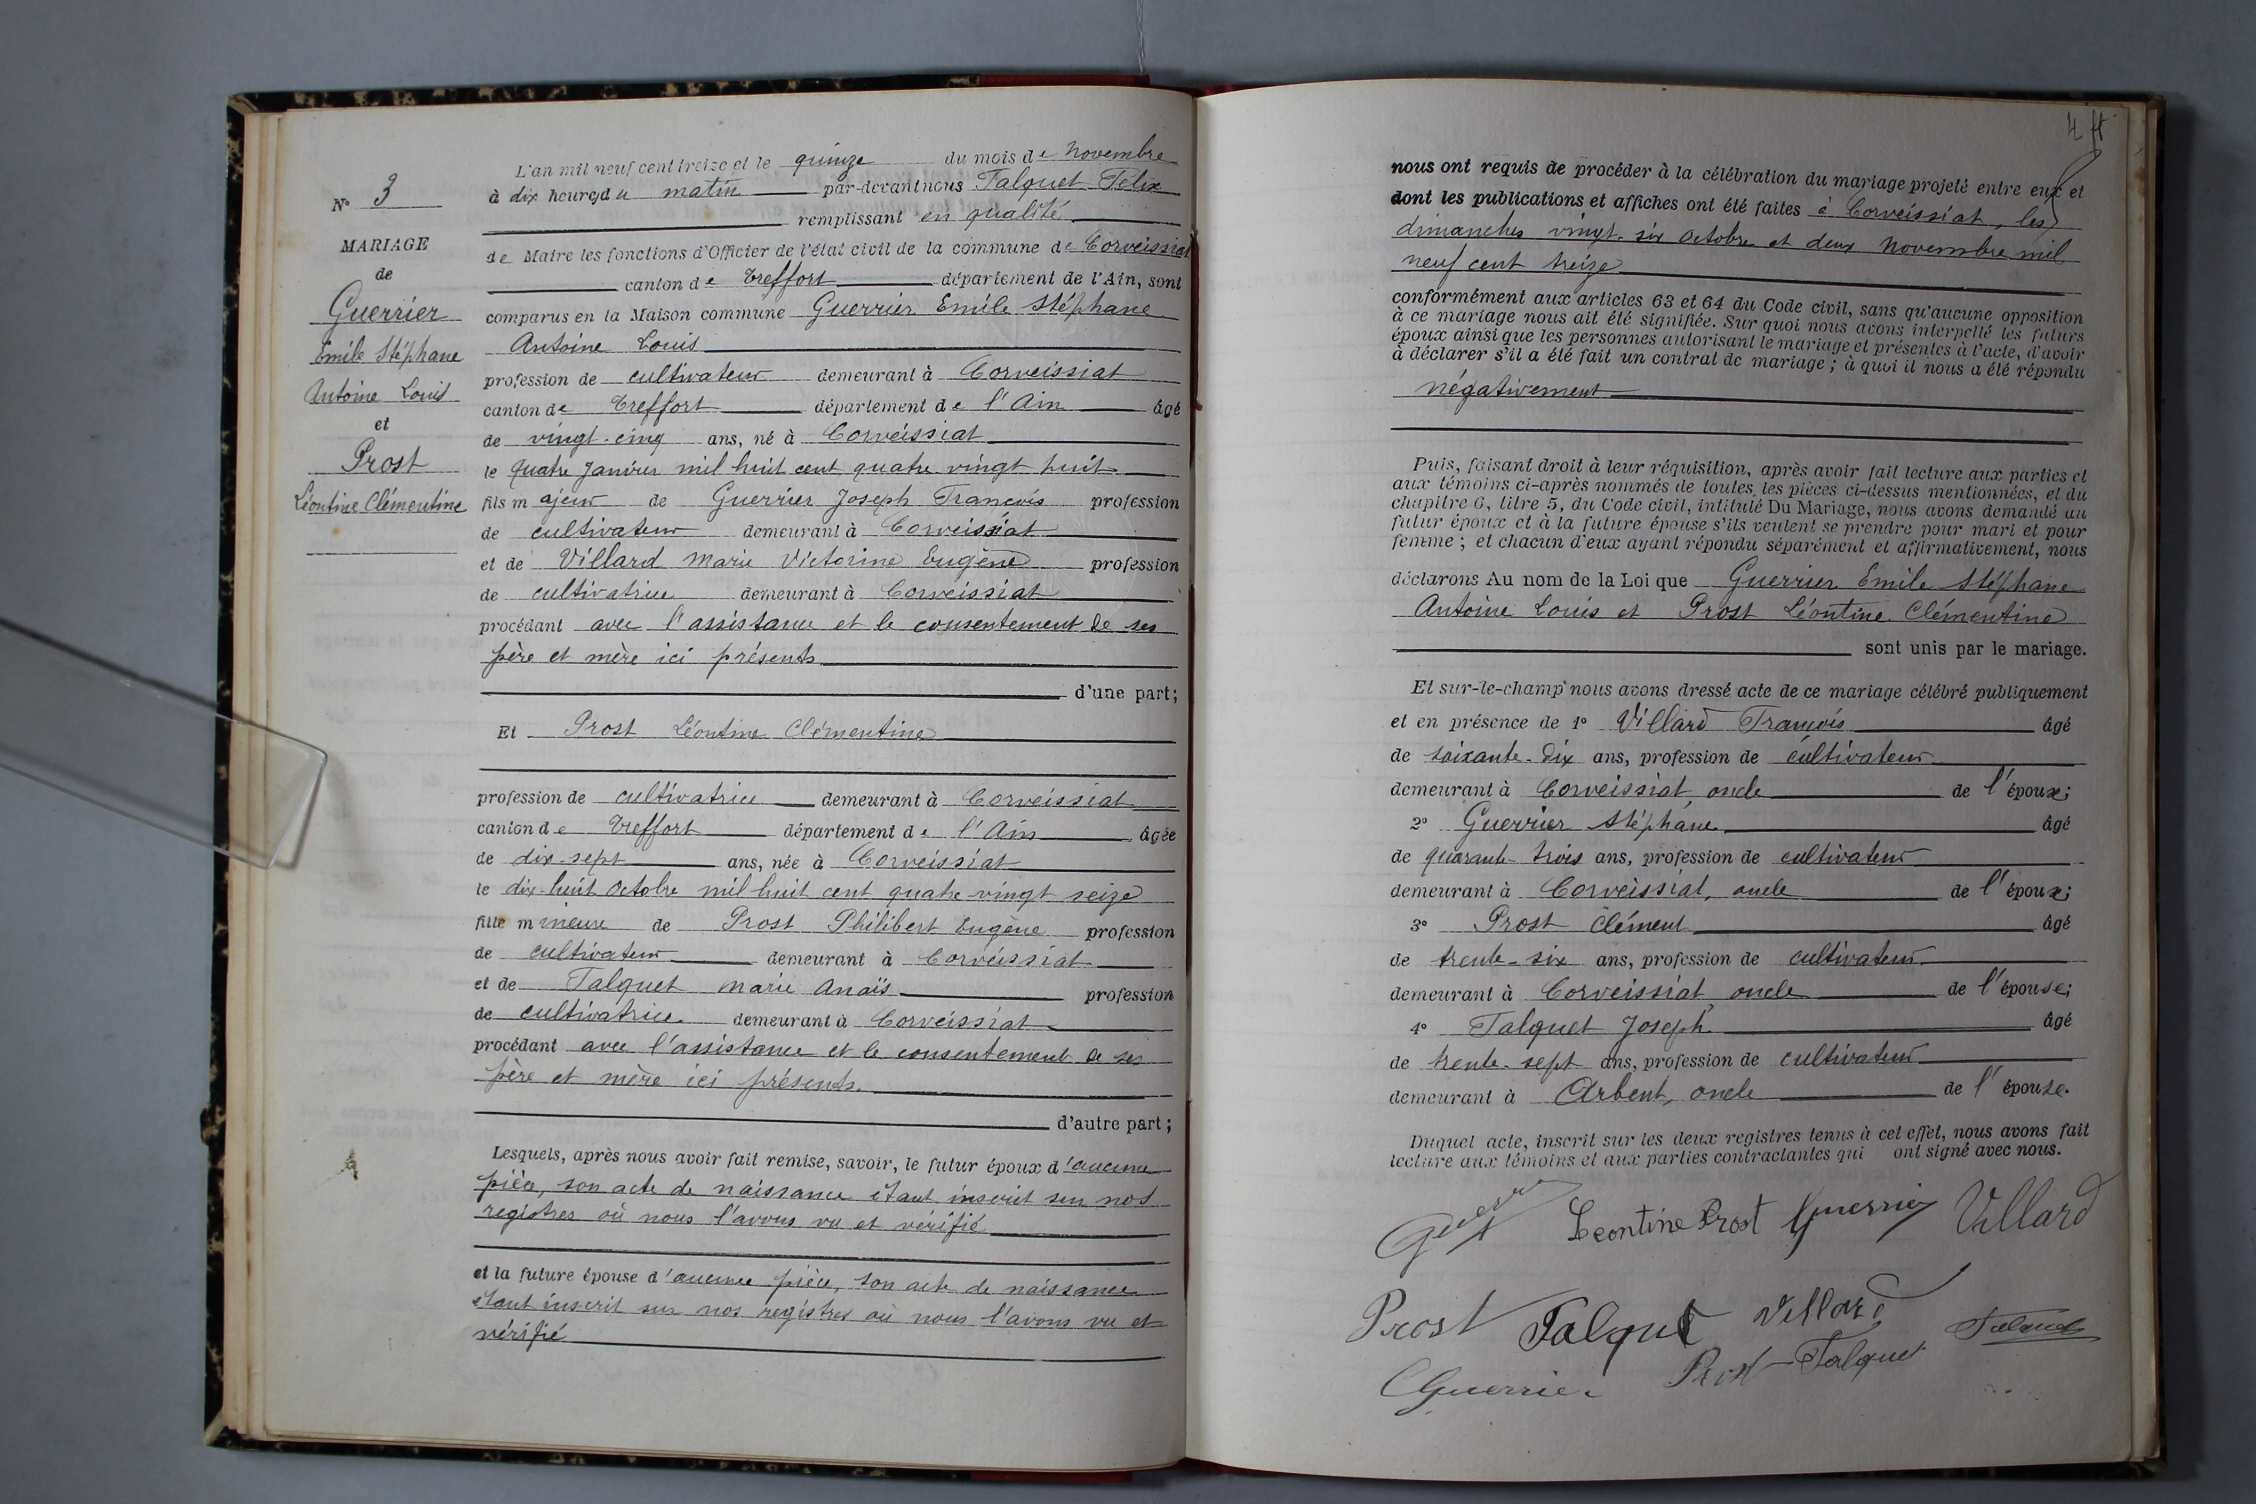 N° 3
MARIAGE
de
Guerrier
Emile Stéphane
Antoine Louis
et
Prost
Léontine Clémentine
L'an mil neuf cent treize et le quinze du mois de Novembre
à dix heures du matin par-devant nous Falquet Félix
remplissant en qualité
de Maire les fonctions d'Officier de l'état civil de la commune de Corveissiat
canton de Treffort département de l'Ain, sont
comparus en la Maison commune Guerrier Emile Stéphane
Antoine Louis
profession de cultivateur demeurant à Corveissiat
canton de Treffort département de l'Ain âgé
de vingt-cinq ans, né à Corveissiat
le quatre Janvier mil huit cent quatre vingt huit
fils majeur de Guerrier Joseph François profession
de cultivateur demeurant à Corveissiat
et de Villard Marie Victorine Eugène profession
de cultivatrice demeurant à Corveissiat
procédant avec l'assistance et le consentement de ses
père et mère ici présents
d'une part;
Et Prost Léontine Clémentine
profession de cultivatrice demeurant à Corveissiat
canton de Treffort département de l'Ain âgée
de dix-sept ans, née à Corveissiat
le dix-huit Octobre mil huit cent quatre vingt seize
fille mineure de Prost Philibert Eugène profession
de cultivateur demeurant à Corveissiat
et de Falquet Marie Anaïs profession
de cultivatrice demeurant à Corveissiat
procédant avec l'assistance et le consentement de ses
père et mère ici présents.
d'autre part;
Lesquels, après nous avoir fait remise, savoir, le futur époux d'aucune
pièce, son acte de naissance étant inscrit sur nos
registres où nous l'avons vu et vérifié
et la future épouse d'aucune pièce, son acte de naissance
étant inscrit sur nos registres où nous l'avons vu et
vérifié
4
nous ont requis de procéder à la célébration du mariage projeté entre eux et
dont les publications et affiches ont été faites à Corveissiat, les
dimanches vingt-six Octobre et deux Novembre mil
neuf cent treize
conformément aux articles 63 et 64 du Code civil, sans qu'aucune opposition
à ce mariage nous ait été signifiée. Sur quoi nous avons interpellé les futurs
époux ainsi que les personnes autorisant le mariage et présentes à l'acte, d'avoir
à déclarer s'il a été fait un contrat de mariage; à quoi il nous a été répondu
négativement
Puis, faisant droit à leur réquisition, après avoir fait lecture aux parties et
aux témoins ci-après nommés de toutes les pièces ci-dessus mentionnées, et du
chapitre 6, titre 5, du Code civil, intitulé Du Mariage, nous avons demandé au
futur époux et à la future épouse s'ils veulent se prendre pour mari et pour
femme; et chacun d'eux ayant répondu séparément et affirmativement, nous
déclarons Au nom de la Loi que Guerrier Emile Stéphane
Antoine Louis et Prost Léontine Clémentine
sont unis par le mariage.
Et sur-le-champ nous avons dressé acte de ce mariage célébré publiquement
et en présence de 1° Villard François âgé
de soixante-dix ans, profession de cultivateur
demeurant à Corveissiat, oncle de l'époux;
2° Guerrier Stéphane âgé
de quarante-trois ans, profession de cultivateur
demeurant à Corveissiat, oncle de l'époux;
3° Prost Clément âgé
de trente-six ans, profession de cultivateur
demeurant à Corveissiat, oncle de l'épouse;
4° Falquet Joseph âgé
de trente-sept ans, profession de cultivateur
demeurant à Arbent, oncle de l'épouse.
Duquel acte, inscrit sur les deux registres tenus à cet effet, nous avons fait
lecture aux témoins et aux parties contractantes qui ont signé avec nous.
Leontine Prost Guerrier Villard
Prost Falquet Villard
Guerrier Prost-Falquet